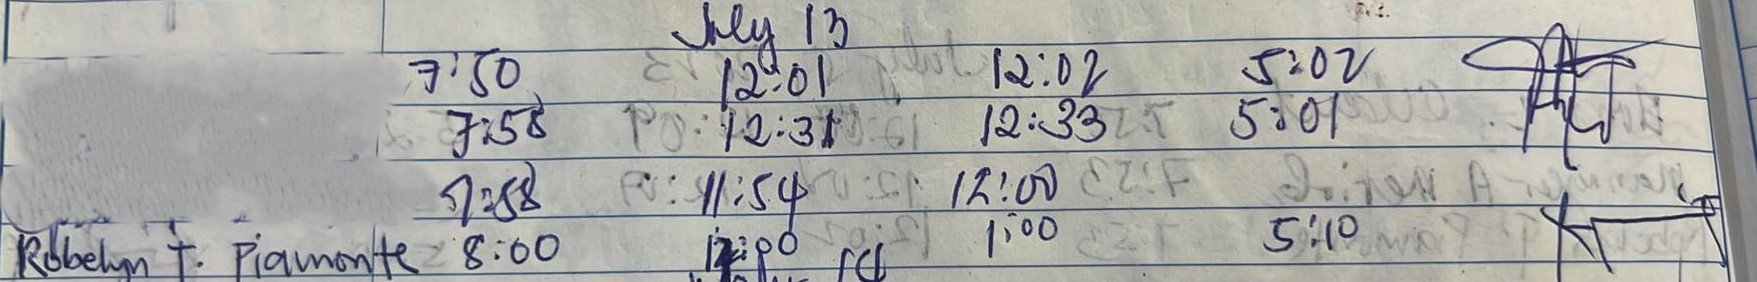 July 13
7:50 12:01 12:02 5:02
7:58 12:31 12:33 5:01
7:58 11:54 12:00
Robelyn T. Piamonte 8:00 12:00 1:00 5:10